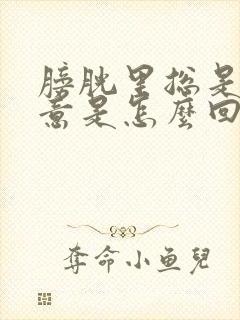 膀胱里总是
意是怎麼回
奪命小鱼兒